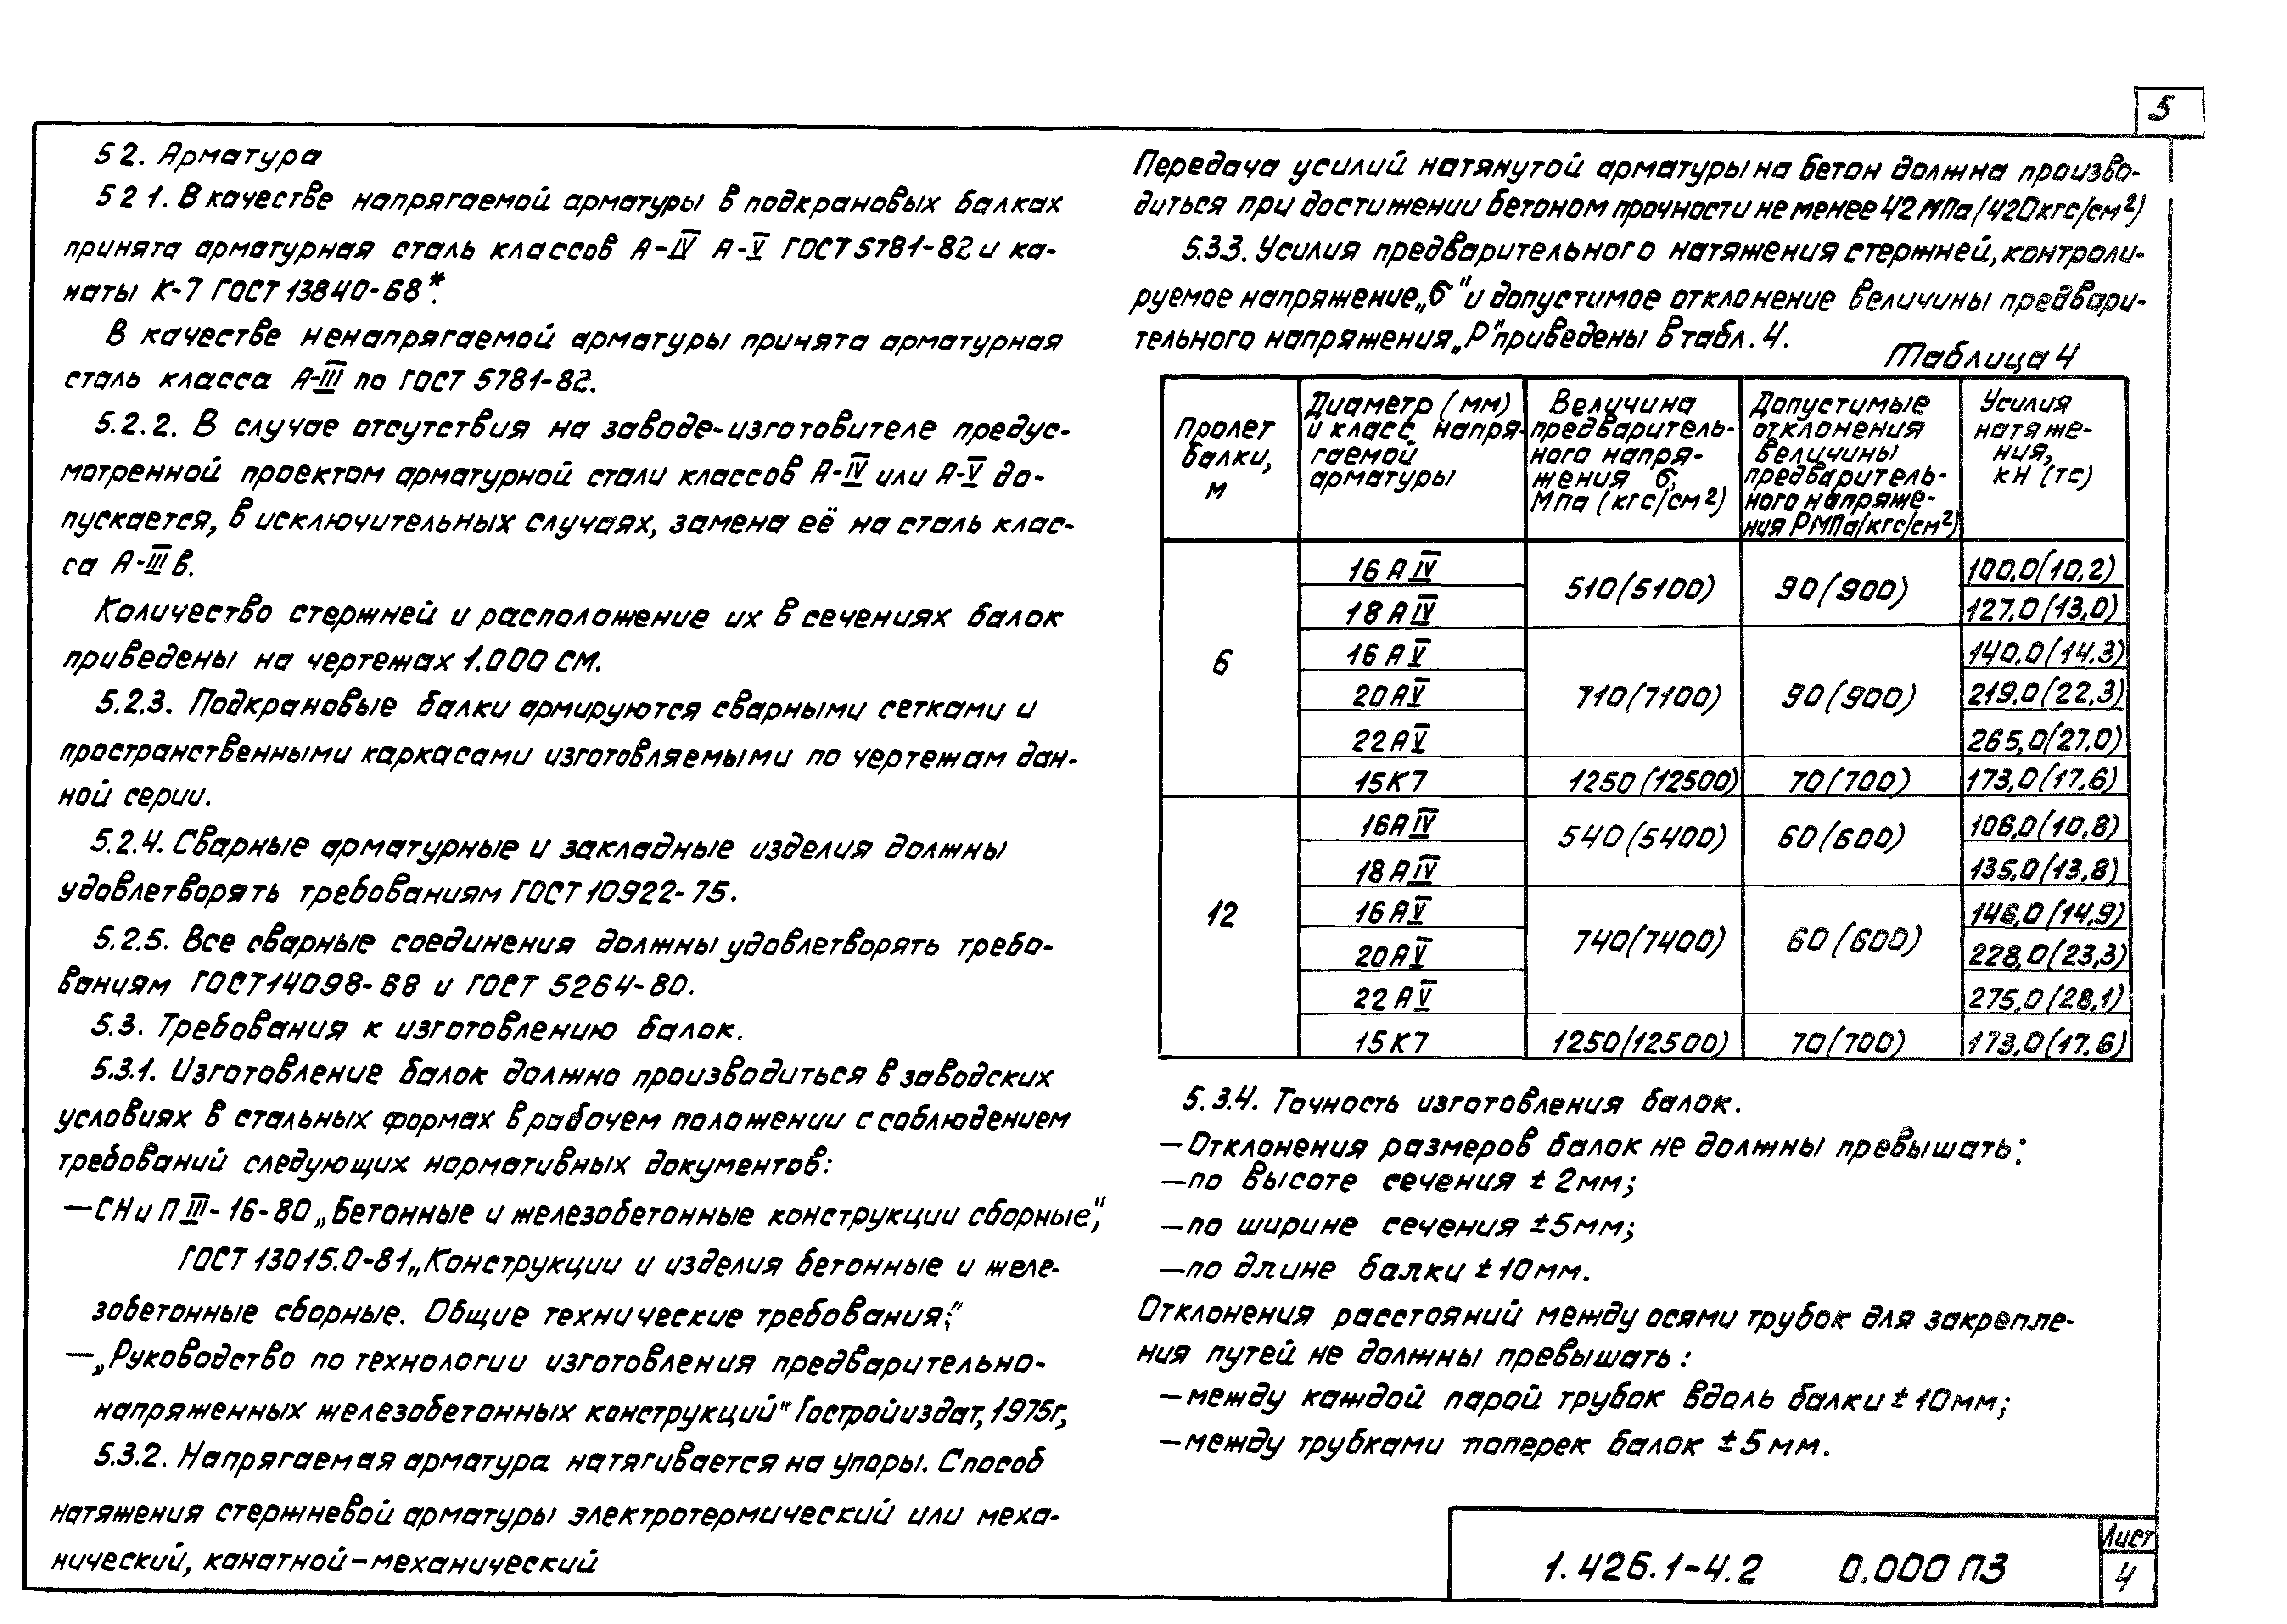 5
5 2. Арматура
5 2 1. В качестве напрягаемой арматуры в подкрановых балках
принята арматурная сталь классов А-IV А-V ГОСТ 5781-82 и ка-
наты К-7 ГОСТ 13840-68*.
В качестве ненапрягаемой арматуры принята арматурная
сталь класса А-III по ГОСТ 5781-82.
5.2.2. В случае отсутствия на заводе-изготовителе предус-
мотренной проектом арматурной стали классов А-IV или А-V до-
пускается, в исключительных случаях, замена её на сталь клас-
са А-III в.
Количество стержней и расположение их в сечениях балок
приведены на чертежах 1.000 СМ.
5.2.3. Подкрановые балки армируются сварными сетками и
пространственными каркасами изготовляемыми по чертежам дан-
ной серии.
5.2.4. Сварные арматурные и закладные изделия должны
удовлетворять требованиям ГОСТ 10922-75.
5.2.5. Все сварные соединения должны удовлетворять требо-
ваниям ГОСТ 14098-68 и ГОСТ 5264-80.
5.3. Требования к изготовлению балок.
5.3.1. Изготовление балок должно производиться в заводских
условиях в стальных формах в рабочем положении с соблюдением
требований следующих нормативных документов:
—СНиП III-16-80 „Бетонные и железобетонные конструкции сборные",
ГОСТ 13015.0-81 „Конструкции и изделия бетонные и желе-
зобетонные сборные. Общие технические требования;"
—„Руководство по технологии изготовления предварительно-
напряженных железобетонных конструкций" Гостройиздат, 1975г,
5.3.2. Напрягаемая арматура натягивается на упоры. Способ
натяжения стержневой арматуры электротермический или меха-
нический, канатной-механический
Передача усилий натянутой арматуры на бетон должна произво-
диться при достижении бетоном прочности не менее 42 МПа (420кгс/см²)
5.3.3. Усилия предварительного натяжения стержней, контроли-
руемое напряжение „б" и допустимое отклонение величины предвари-
тельного напряжения „Р" приведены в табл. 4.
Таблица 4
Пролет балки, м | Диаметр (мм) и класс напрягаемой арматуры | Величина предваритель-ного напря-жения б, МПа (кгс/см²) | Допустимые отклонения величины предваритель-ного напряже-ния Р МПа (кгс/см²) | Усилия натяже-ния, кН (тс)
6 | 16 А IV | 510 (5100) | 90 (900) | 100,0 (10,2)
18 А IV | 127,0 (13,0)
16 А V | 710 (7100) | 90 (900) | 140,0 (14.3)
20 А V | 219,0 (22,3)
22 А V | 265,0 (27.0)
15К7 | 1250 (12500) | 70 (700) | 173,0 (17.6)
12 | 16 А IV | 540 (5400) | 60 (600) | 106,0 (10,8)
18 А IV | 135,0 (13,8)
16 А V | 740 (7400) | 60 (600) | 146,0 (14,9)
20 А V | 228,0 (23,3)
22 А V | 275,0 (28,1)
15К7 | 1250 (12500) | 70 (700) | 173,0 (17.6)
5.3.4. Точность изготовления балок.
—Отклонения размеров балок не должны превышать:
—по высоте сечения ± 2мм;
—по ширине сечения ±5мм;
—по длине балки ±10мм.
Отклонения расстояний между осями трубок для закрепле-
ния путей не должны превышать:
—между каждой парой трубок вдоль балки ± 10мм;
—между трубками поперек балок ±5 мм.
1.426.1-4.2 0.000 ПЗ
Лист
4